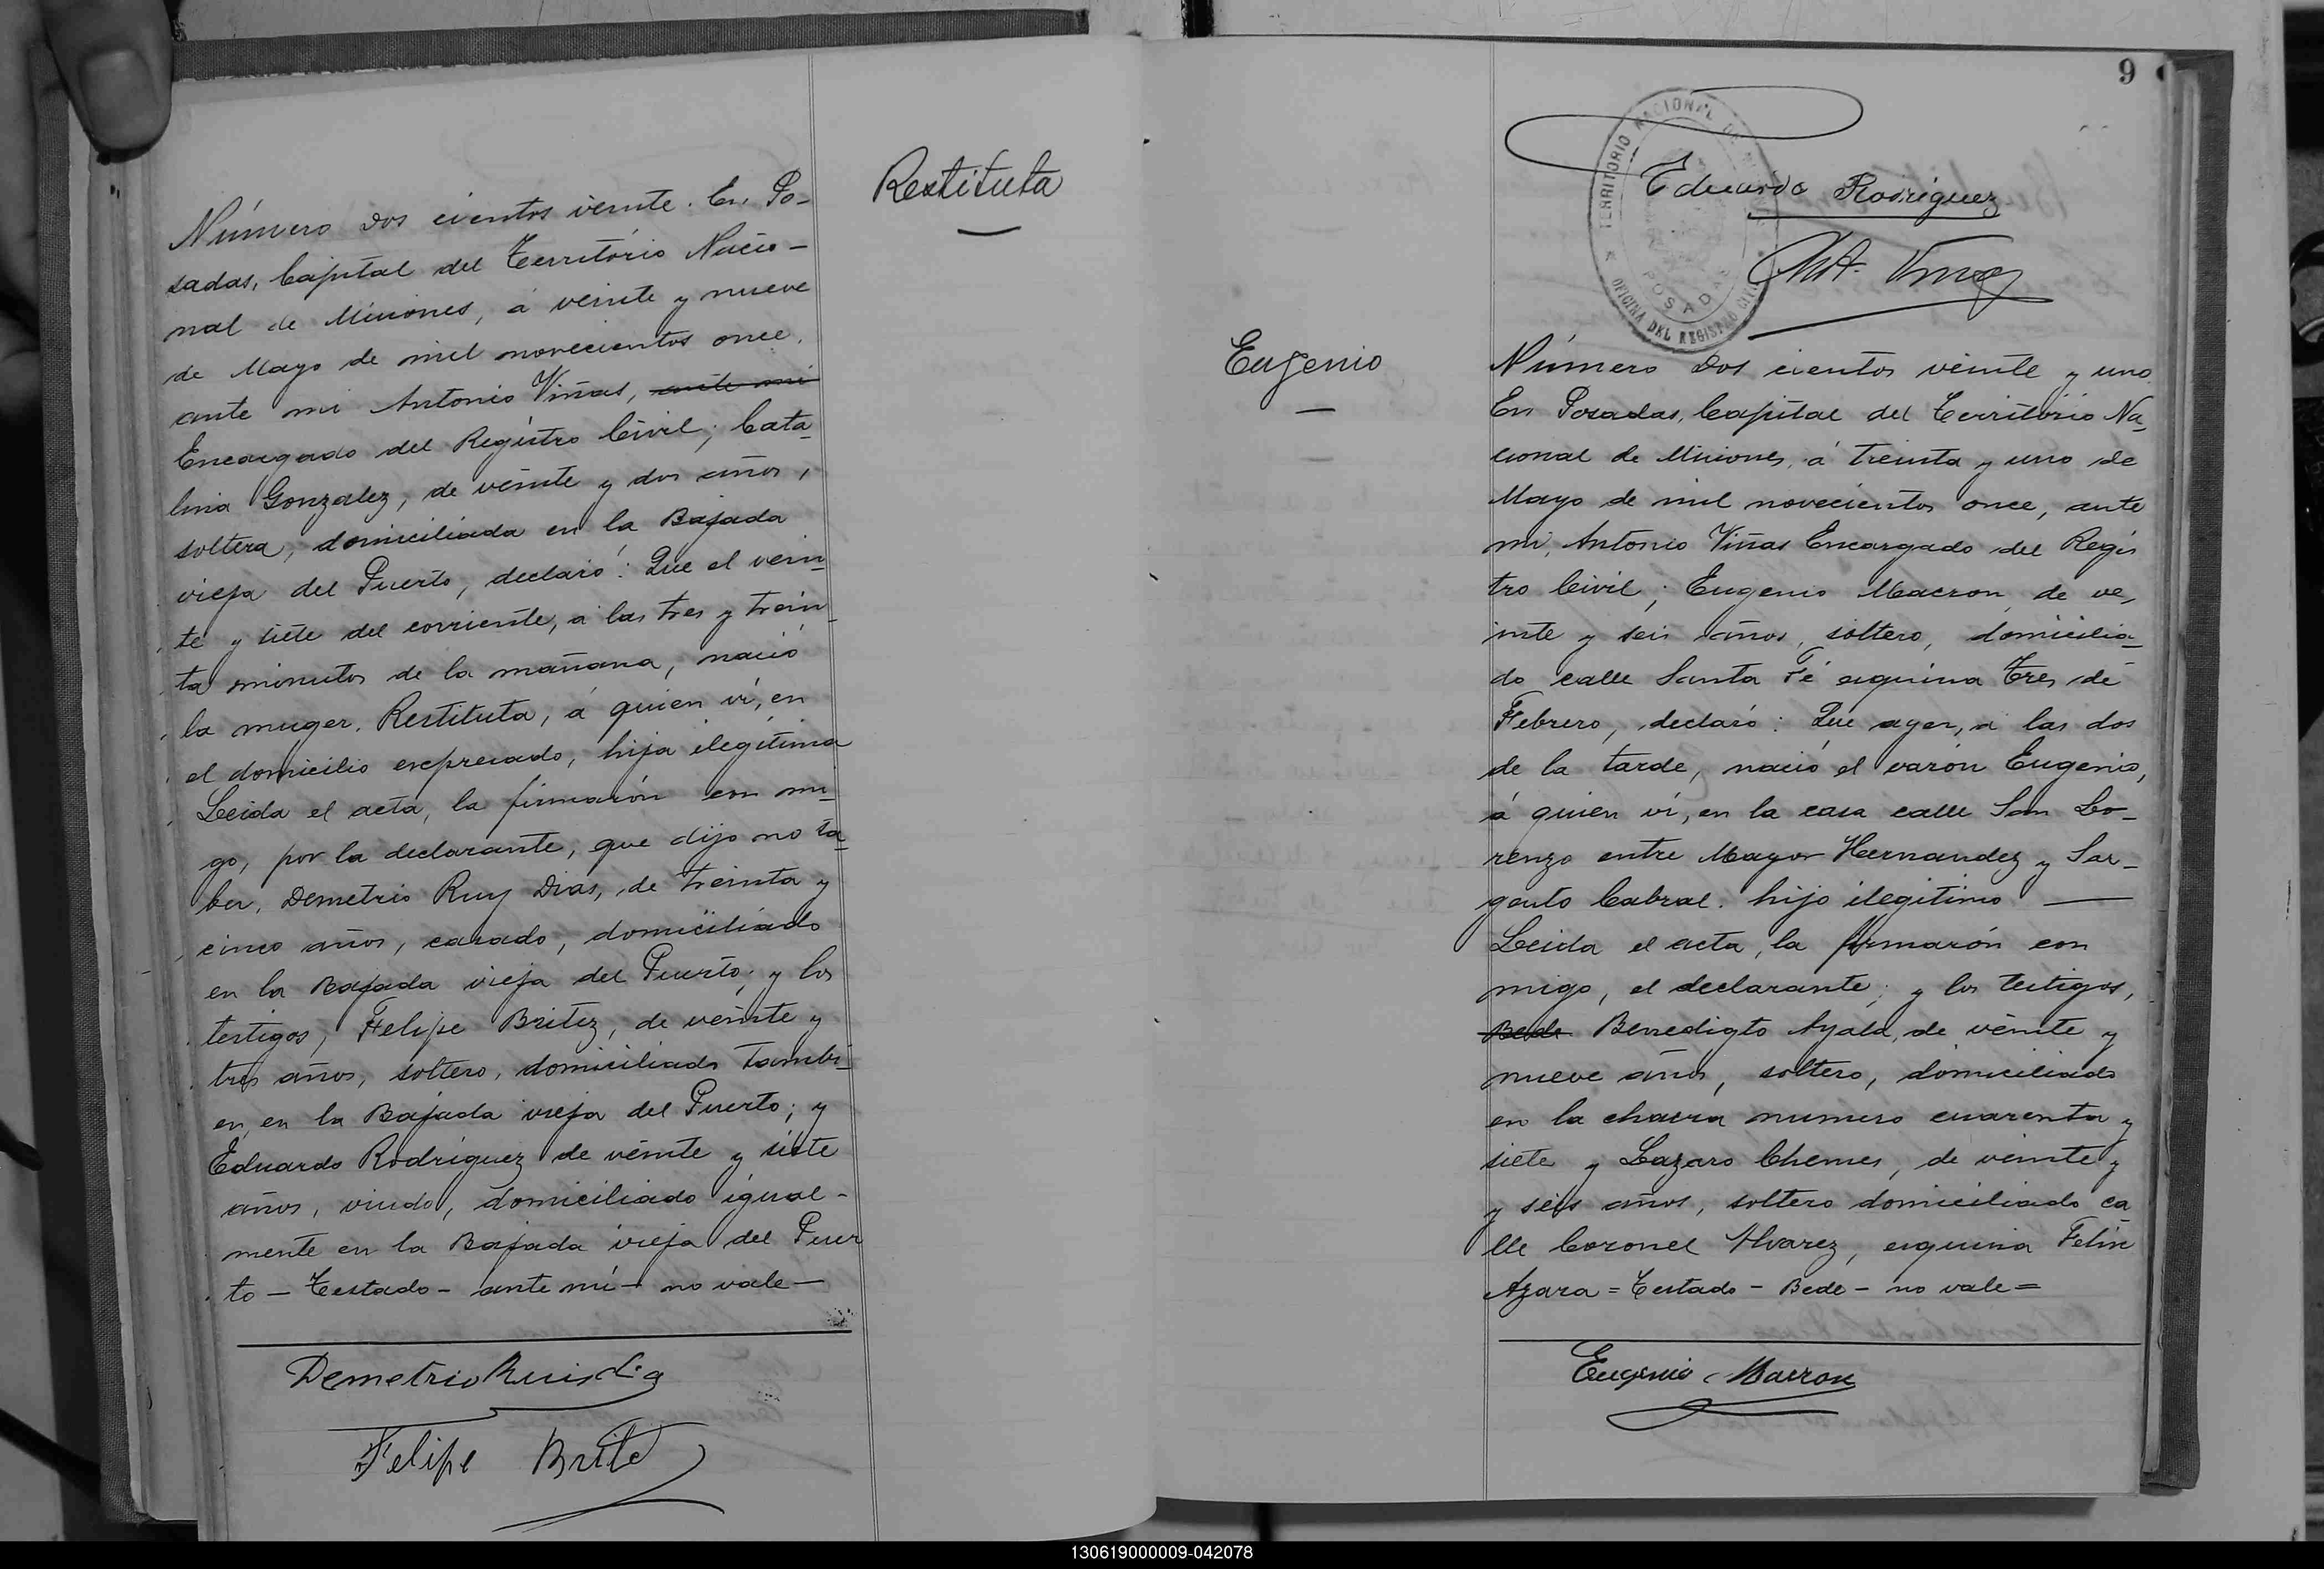 Restituta
Número dos cientos veinte. En Po-
sadas, Capital del Território Nacio-
nal de Misiones, á veinte y nueve
de Mayo de mil novecientos once,
ante mi Antonio Viñas, ante mi
Encargado del Registro Civil; Cata-
lina Gonzalez, de veinte y dos años,
soltera, domiciliada en la Bajada
vieja del Puerto, declaró: Que el vein-
te y siete del corriente, a las tres y trein-
ta minutos de la mañana, nació
la muger, Restituta, á quien ví, en
el domicilio expresado, hija ilegítima
Leida el acta, la firmarón con mi-
go, por la declarante, que dijo no sa-
ber, Demetrio Ruy Dias, de treinta y
cinco años, casado, domiciliado
en la Bajada vieja del Puerto; y los
testigos, Felipe Britez, de veinte y
tres años, soltero, domiciliado tambi-
en, en la Bajada vieja del Puerto; y
Eduardo Rodríguez de veinte y siete
años, viudo, domiciliado igual-
mente en la Bajada vieja del Puer
to - Testado - ante mí - no vale -
Demetrio Ruis dia
Felipe Brite
9
TERRITORIO NACIONAL DE MISIONES
POSADAS
OFICINA DEL REGISTRO CIVIL
Eduardo Rodriguez
Ant. Vinas
Eugenio
Número dos cientos veinte y uno
En Posadas, Capital del Território Na-
cional de Misiones, á treinta y uno de
Mayo de mil novecientos once, ante
mi, Antonio Viñas Encargado del Regis
tro Civil; Eugenio Macron, de ve-
inte y seis años, soltero, domicilia-
do calle Santa Fé esquina Tres de
Febrero, declaró: Que ayer, a las dos
de la tarde, nació el varón Eugenio,
á quien ví, en la casa calle San Lo-
renzo entre Mayor Hernandez y Sar-
gento Cabral. hijo ilegítimo
Leida el acta, la firmarón con
migo, el declarante; y los testigos,
Bede Benedigto Ayala, de veinte y
nueve años, soltero, domiciliado
en la chacra numero cuarenta y
siete y Lazaro Chemes, de veinte y
y seis años, soltero domiciliado ca
lle Coronel Alvarez, esquina Felix
Azara = Testado - Bede - no vale =
Eugenio Macron
130619000009-042078